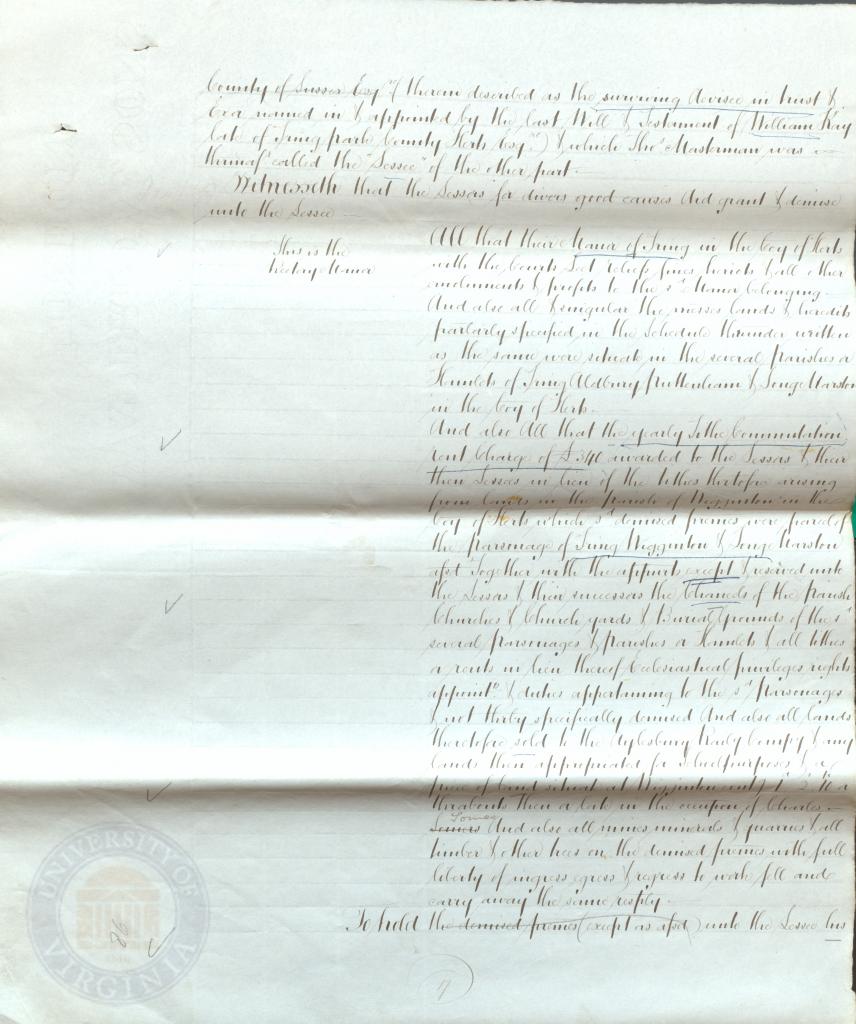 County of Sussex Esqre) therein described as the surviving devisee in trust &
Exor named in & appointed by the last Will & Testament of William Kay
late of Tring park County Herts Esqre) & which Thos Masterman was
thrinafr called the "Lessee" of the other part.
Witnesseth that the Lessors for divers good causes did grant & demise
unto the Lessee
This is the
Rectory Manor
All that their Manor of Tring in the Coy of Herts
with the Courts Leet reliefs fines heriots & all other
emoluments & profits to the sd Manor belonging
And also all & singular the messes lands & heredits
partarly specified in the Schedule thereunder written
as the same were situate in the several parishes or
Hamlets of Tring Aldbury Puttenham & Longe Marston
in the Coy of Herts.
And also All that the yearly tithe Commutation
rent Charge of £340 awarded to the Lessors & their
then Lessees in lieu of the tithes thertofore arising
from lands in the Parish of Wigginton in the
Coy of Herts which sd demised premes were parcel of
the parsonage of Tring Wigginton & Longe Marston
afsd Together with the appurts except & reserved unto
the Lessors & their successors the Chancels of the parish
Churches & Church yards & Burial Grounds of the sd
several parsonages & parishes or Hamlets & all tithes
or rents in lieu thereof Ecclesiastical privileges rights
appointts & duties appertaining to the sd parsonages
& not thrby specifically demised And also all lands
theretofore sold to the Aylesbury Raily Compy & any
lands then appropriated for school purposes & a
piece of land situat at Wigginton contg
thrabouts then or late in the occupon of Charles
Somers And also all mines minerals & quarries & all
Tomes
timber & other trees on the demised premes with full
liberty of ingress egress & regress to work fell and
carry away the same resply.
To hold the demised premes (except as afsd) unto the Lessee his
86
UNIVERSITY OF
VIRGINIA